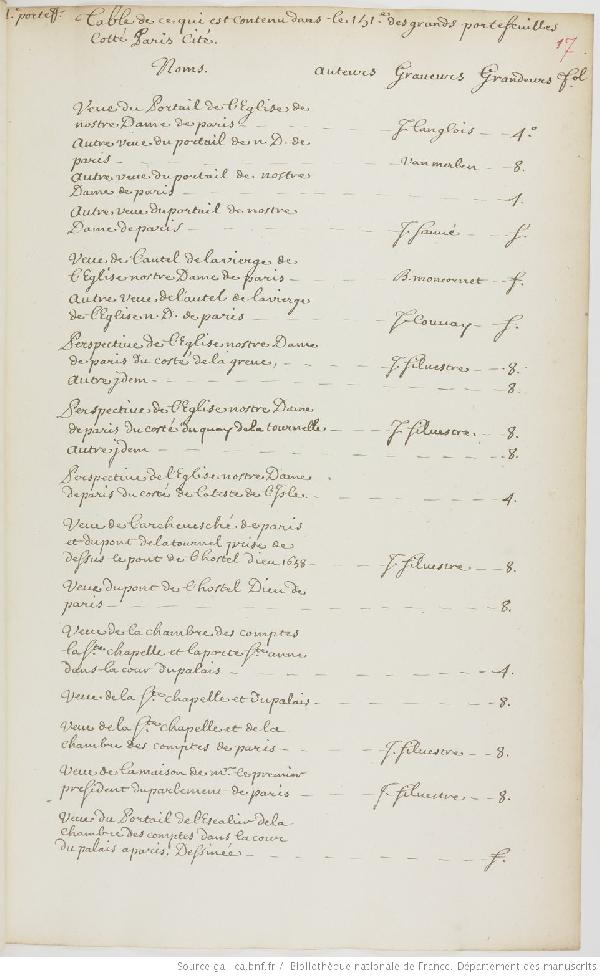 1. porteff. Table de ce qui est contenu dans le 151.e des grands portefeuilles
Cotté Paris Cité.
17
Noms. Auteurs Graveurs Grandeurs fol
Veue du Portail de l'Eglise de
nostre Dame de paris — J. Langlois — 4.o
Autre veue du portail de n. D. de
paris — Vanmerlen — 8.
Autre veue du portail de nostre
Dame de paris — 4.
Autre veue du portail de nostre
Dame de paris — f.
Veue de l'autel de la vierge de
l'Eglise nostre Dame de paris — B. moncornet — f.
Autre veue de l'autel de la vierge
de l'Eglise n. D. de paris — J. Couvay — f.
Perspective de l'Eglise nostre Dame
de paris du costé de la greve, — J. Silvestre — 8.
Autre jdem — 8.
Perspective de l'Eglise nostre Dame
de paris du costé du quay de la tournelle — J. Silvestre — 8.
Autre jdem — 8.
Perspective de l'Eglise nostre Dame
de paris du costé de la teste de l'Isle — 4.
Veue de l'archevesché de paris
et du pont de la tournel prise de
dessus le pont de l'hostel dieu 1658 — J. Silvestre — 8.
Veue du pont de l'hostel Dieu de
paris — 8.
Veue de la chambre des comptes
la Ste chapelle et la porte Ste anne
dans la cour du palais — 4.
Veue de la Ste chapelle et du palais — 8.
Veue de la Ste chapelle et de la
chambre des comptes de paris — J. Silvestre — 8.
Veue de la maison de mr. le premier
président du parlement de paris — J. Silvestre — 8.
Veue du Portail de l'Escalier de la
chambre des comptes dans la cour
du palais a paris. Dessinée — f.
Source gallica.bnf.fr / Bibliothèque nationale de France. Département des manuscrits